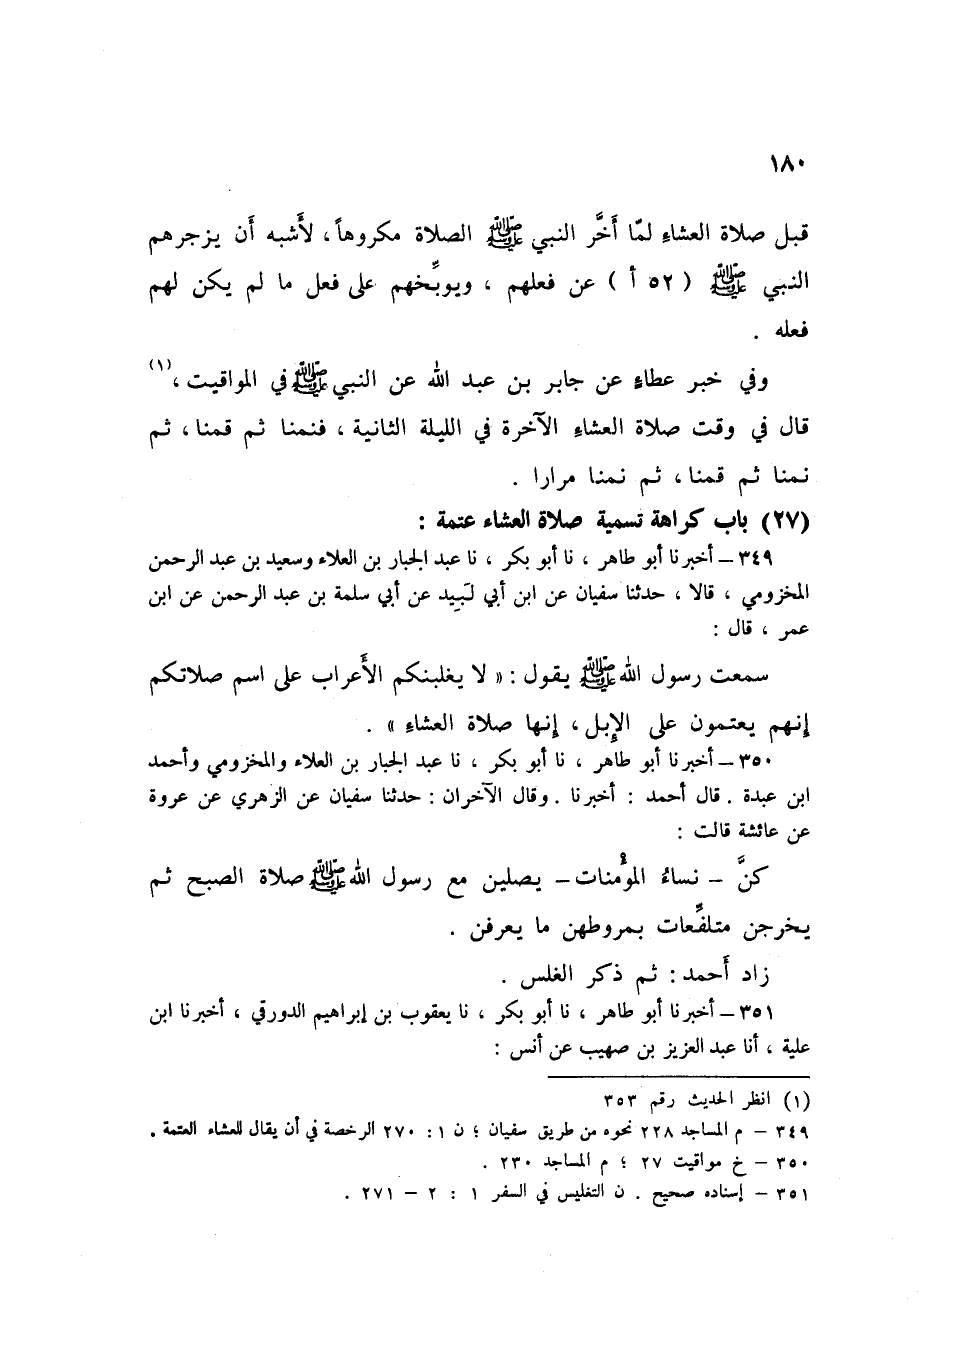 ١٨٠
قبل صلاة العشاءِ لمّا أَخَّر النبي ﷺ الصلاة مكروهاً، لأَشبه أَن يزجرهم
النبي ﷺ ( ٥٢ أ ) عن فعلهم ، ويوبِّخهم على فعل ما لم يكن لهم
فعله .
وفي خبر عطاءٍ عن جابر بن عبد الله عن النبي ﷺ في المواقيت ،(١)
قال في وقت صلاة العشاءِ الآخرة في الليلة الثانية ، فنمنا ثم قمنا ، ثم
نمنا ثم قمنا ، ثم نمنا مرارا .
(٢٧) باب كراهة تسمية صلاة العشاء عتمة :
٣٤٩ – أخبرنا أبو طاهر ، نا أبو بكر ، نا عبد الجبار بن العلاء وسعيد بن عبد الرحمن
المخزومي ، قالا ، حدثنا سفيان عن ابن أبي لَبِيد عن أبي سلمة بن عبد الرحمن عن ابن
عمر ، قال :
سمعت رسول الله ﷺ يقول : « لا يغلبنكم الأَعراب على اسم صلاتكم
إنهم يعتمون على الإبل ، إنها صلاة العشاءِ » .
٣٥٠ – أخبرنا أبو طاهر ، نا أبو بكر ، نا عبد الجبار بن العلاء والمخزومي وأحمد
ابن عبدة . قال أحمد : أخبرنا . وقال الآخران : حدثنا سفيان عن الزهري عن عروة
عن عائشة قالت :
كنَّ – نساءُ المؤْمنات – يصلين مع رسول الله ﷺ صلاة الصبح ثم
يخرجن متلفِّعات بمروطهن ما يعرفن .
زاد أَحمد : ثم ذكر الغلس .
٣٥١ – أخبرنا أبو طاهر ، نا أبو بكر ، نا يعقوب بن إبراهيم الدورقي ، أخبرنا ابن
علية ، أنا عبد العزيز بن صهيب عن أنس :
(١) انظر الحديث رقم ٣٥٣
٣٤٩ – م المساجد ٢٢٨ نحوه من طريق سفيان ؛ ن ١ : ٢٧٠ الرخصة في أن يقال للعشاء العتمة .
٣٥٠ – خ مواقيت ٢٧ ؛ م المساجد ٢٣٠ .
٣٥١ – إسناده صحيح . ن التغليس في السفر ١ : ٢ – ٢٧١ .